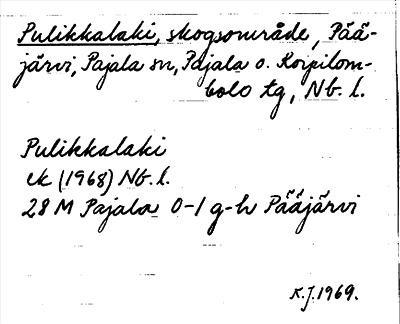 Pulikkalaki, skogsområde, Pää-
järvi, Pajala sn, Pajala o. Korpilom-
bolo tg, Nb. l.
Pulikkalaki
ek (1968) Nb. l.
28 M Pajala 0-1 g-h Pääjärvi
K.J. 1969.